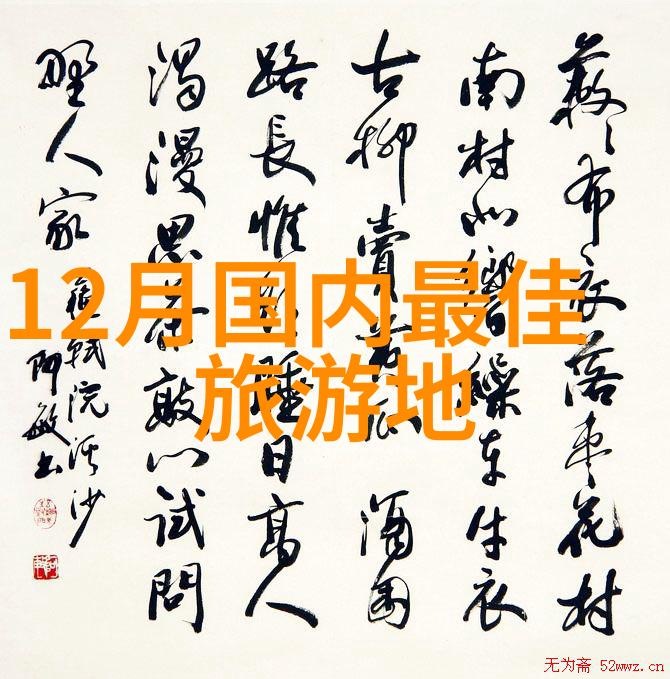 蔌〻落枣花村
南村北響繰车牛衣
古柳賣黄瓜 酒困
路長惟欲睡日高人
渴漫思茶敲门试問
野人家
蘇軾浣溪沙
阿敏书
12月国内最佳
旅游地
无为斋 52wwz.cn